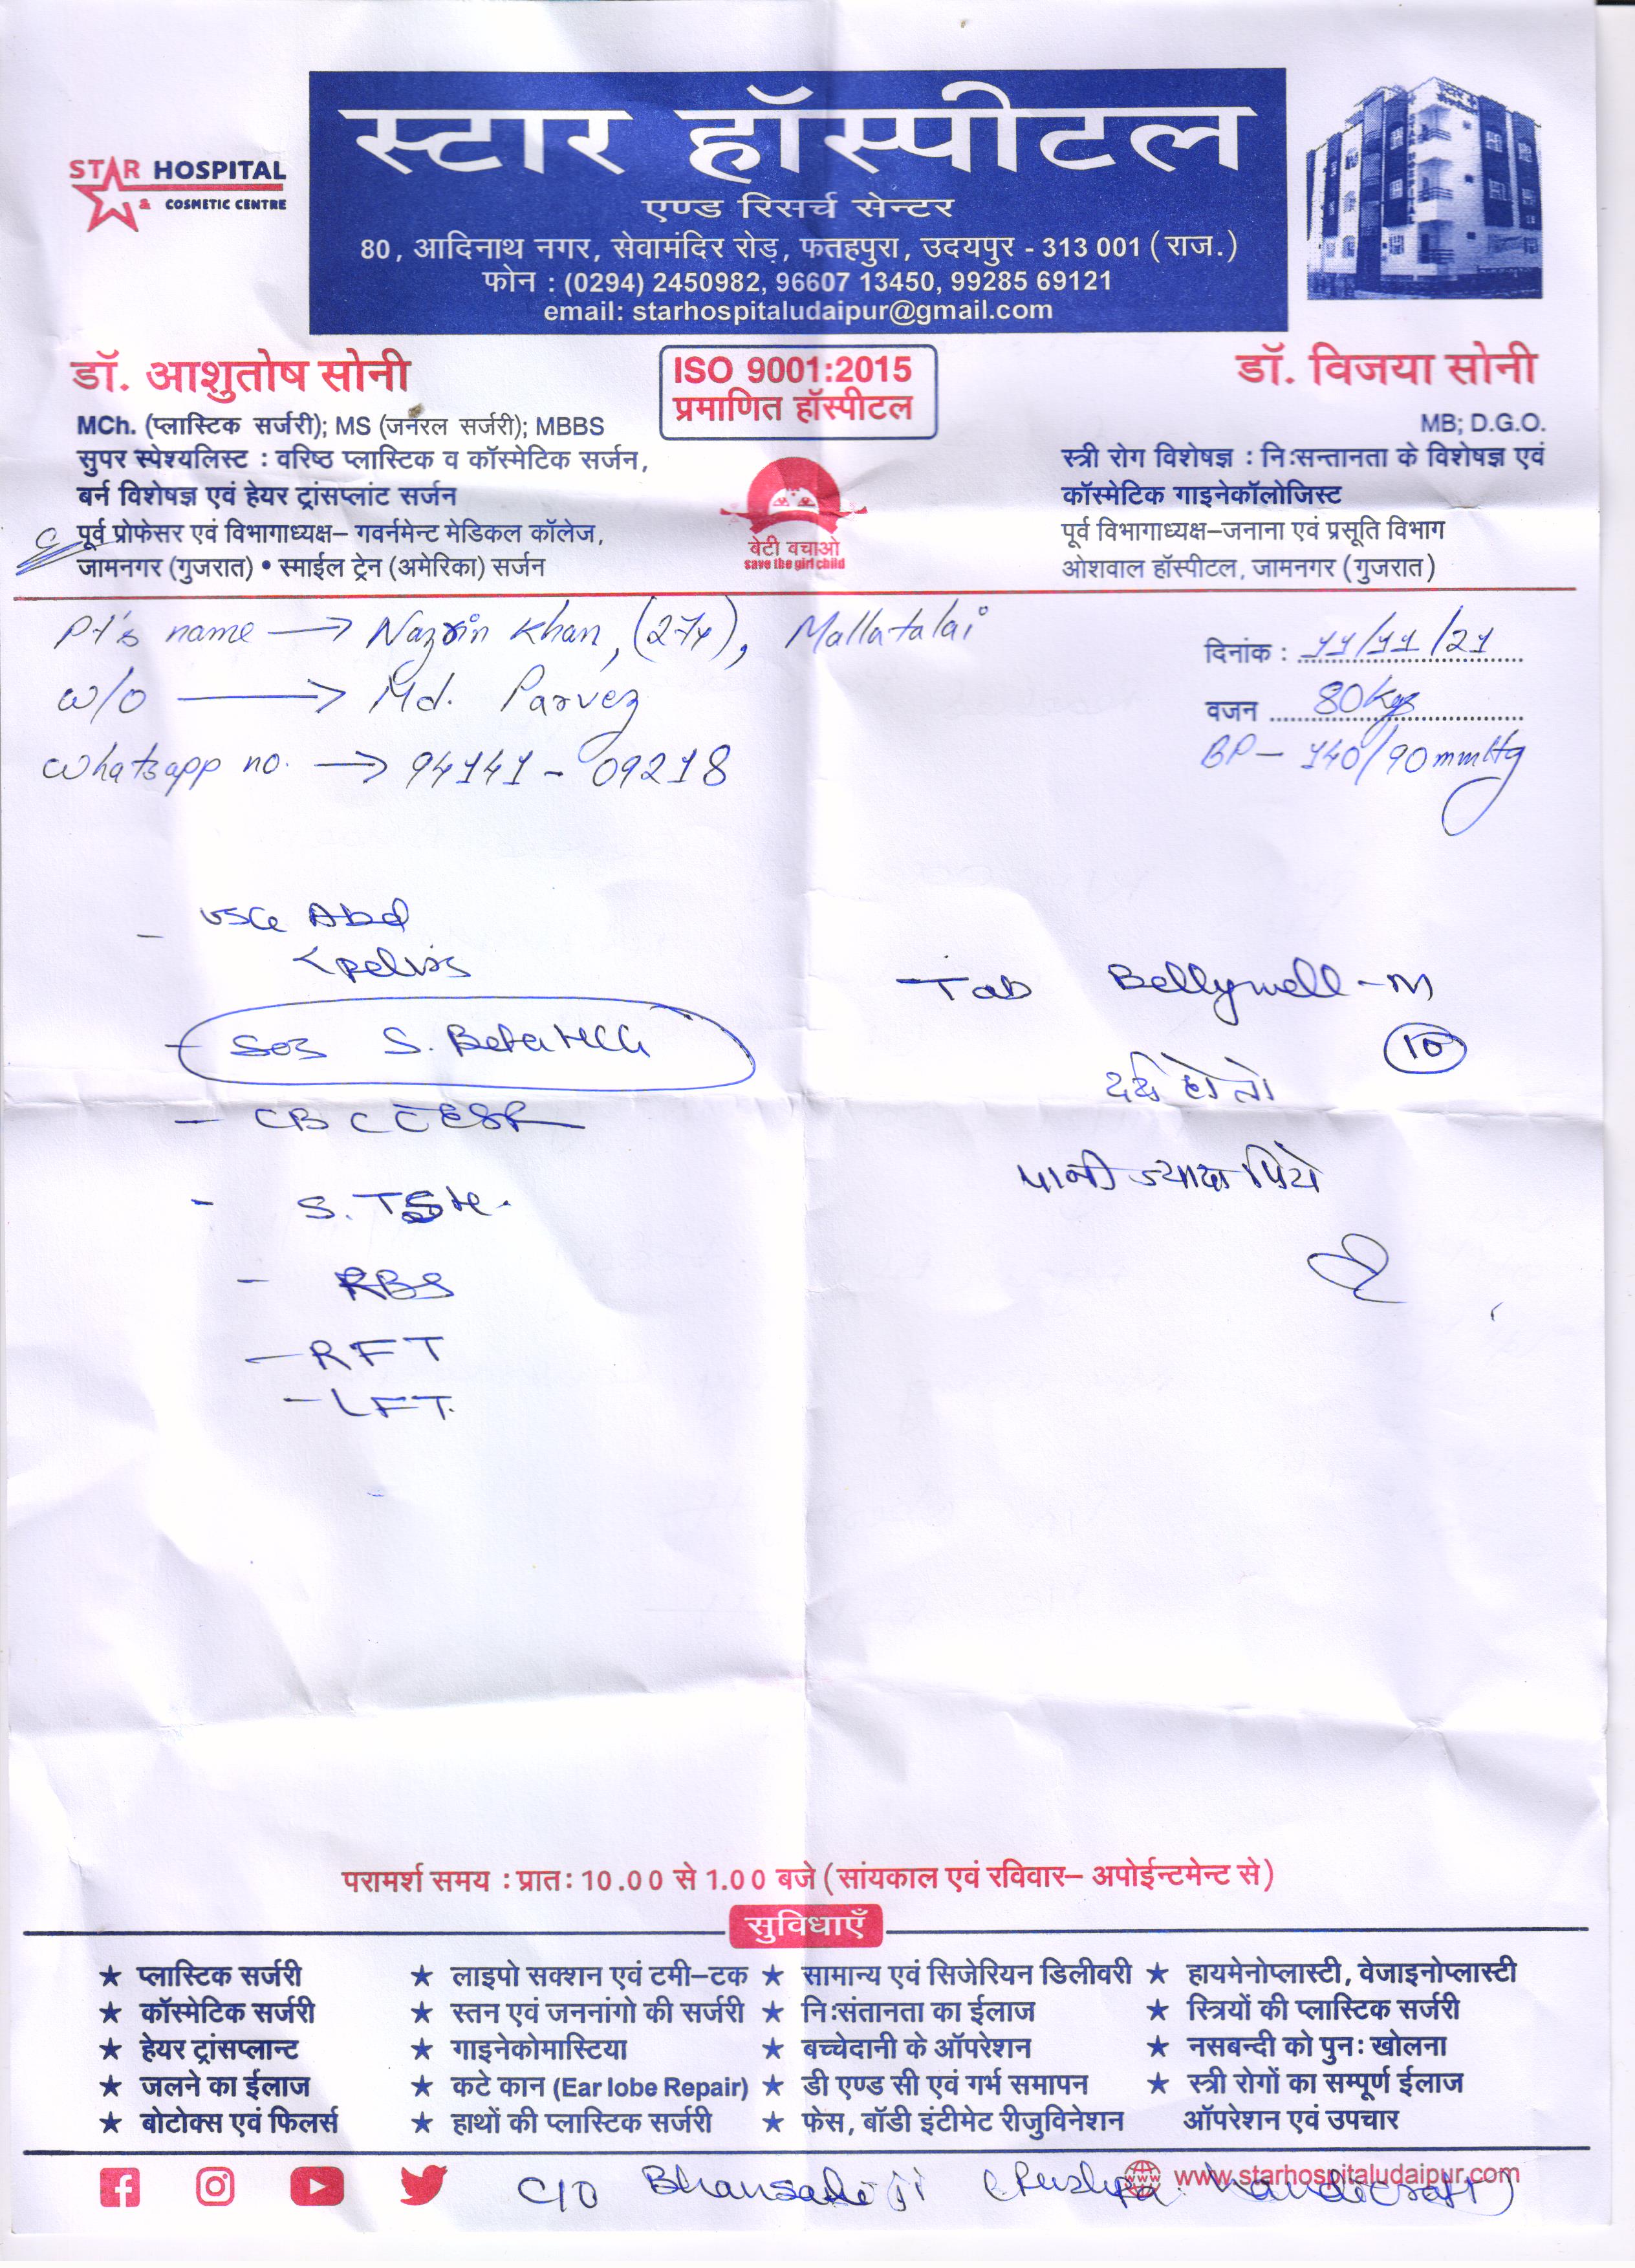 STAR HOSPITAL
& COSMETIC CENTRE
स्टार हॉस्पीटल
एण्ड रिसर्च सेन्टर
80, आदिनाथ नगर, सेवामंदिर रोड़, फतहपुरा, उदयपुर - 313 001 (राज.)
फोन : (0294) 2450982, 96607 13450, 99285 69121
email: starhospitaludaipur@gmail.com
डॉ. आशुतोष सोनी
MCh. (प्लास्टिक सर्जरी); MS (जनरल सर्जरी); MBBS
सुपर स्पेश्यलिस्ट : वरिष्ठ प्लास्टिक व कॉस्मेटिक सर्जन,
बर्न विशेषज्ञ एवं हेयर ट्रांसप्लांट सर्जन
पूर्व प्रोफेसर एवं विभागाध्यक्ष– गवर्नमेन्ट मेडिकल कॉलेज,
जामनगर (गुजरात) • स्माईल ट्रेन (अमेरिका) सर्जन
ISO 9001:2015
प्रमाणित हॉस्पीटल
बेटी बचाओ
save the girl child
डॉ. विजया सोनी
MB; D.G.O.
स्त्री रोग विशेषज्ञ : निःसन्तानता के विशेषज्ञ एवं
कॉस्मेटिक गाइनेकॉलोजिस्ट
पूर्व विभागाध्यक्ष–जनाना एवं प्रसूति विभाग
ओशवाल हॉस्पीटल, जामनगर (गुजरात)
Pt's name → Nazrin Khan, (27y), Mallatalai
w/o → Md. Parvez
Whatsapp no. → 94141 - 09218
दिनांक : 11/11/21
वजन 80kgs
BP - 140/90 mmHg
- USG Abd
< pelvis
- SOS S. Beta HCG
- CBC C̄ ESR
- S. TSH.
- RBS
- RFT
- LFT.
- Tab Bellywell-M
10
दर्द हो तो
पानी ज्यादा पिये
परामर्श समय : प्रातः 10.00 से 1.00 बजे (सांयकाल एवं रविवार– अपोईन्टमेन्ट से)
सुविधाएँ
★ प्लास्टिक सर्जरी ★ लाइपो सक्शन एवं टमी–टक ★ सामान्य एवं सिजेरियन डिलीवरी ★ हायमेनोप्लास्टी, वेजाइनोप्लास्टी
★ कॉस्मेटिक सर्जरी ★ स्तन एवं जननांगो की सर्जरी ★ निःसंतानता का ईलाज ★ स्त्रियों की प्लास्टिक सर्जरी
★ हेयर ट्रांसप्लान्ट ★ गाइनेकोमास्टिया ★ बच्चेदानी के ऑपरेशन ★ नसबन्दी को पुनः खोलना
★ जलने का ईलाज ★ कटे कान (Ear lobe Repair) ★ डी एण्ड सी एवं गर्भ समापन ★ स्त्री रोगों का सम्पूर्ण ईलाज
★ बोटोक्स एवं फिलर्स ★ हाथों की प्लास्टिक सर्जरी ★ फेस, बॉडी इंटीमेट रीजुविनेशन ऑपरेशन एवं उपचार
www.starhospitaludaipur.com
C/O (Pushpa handicraft)